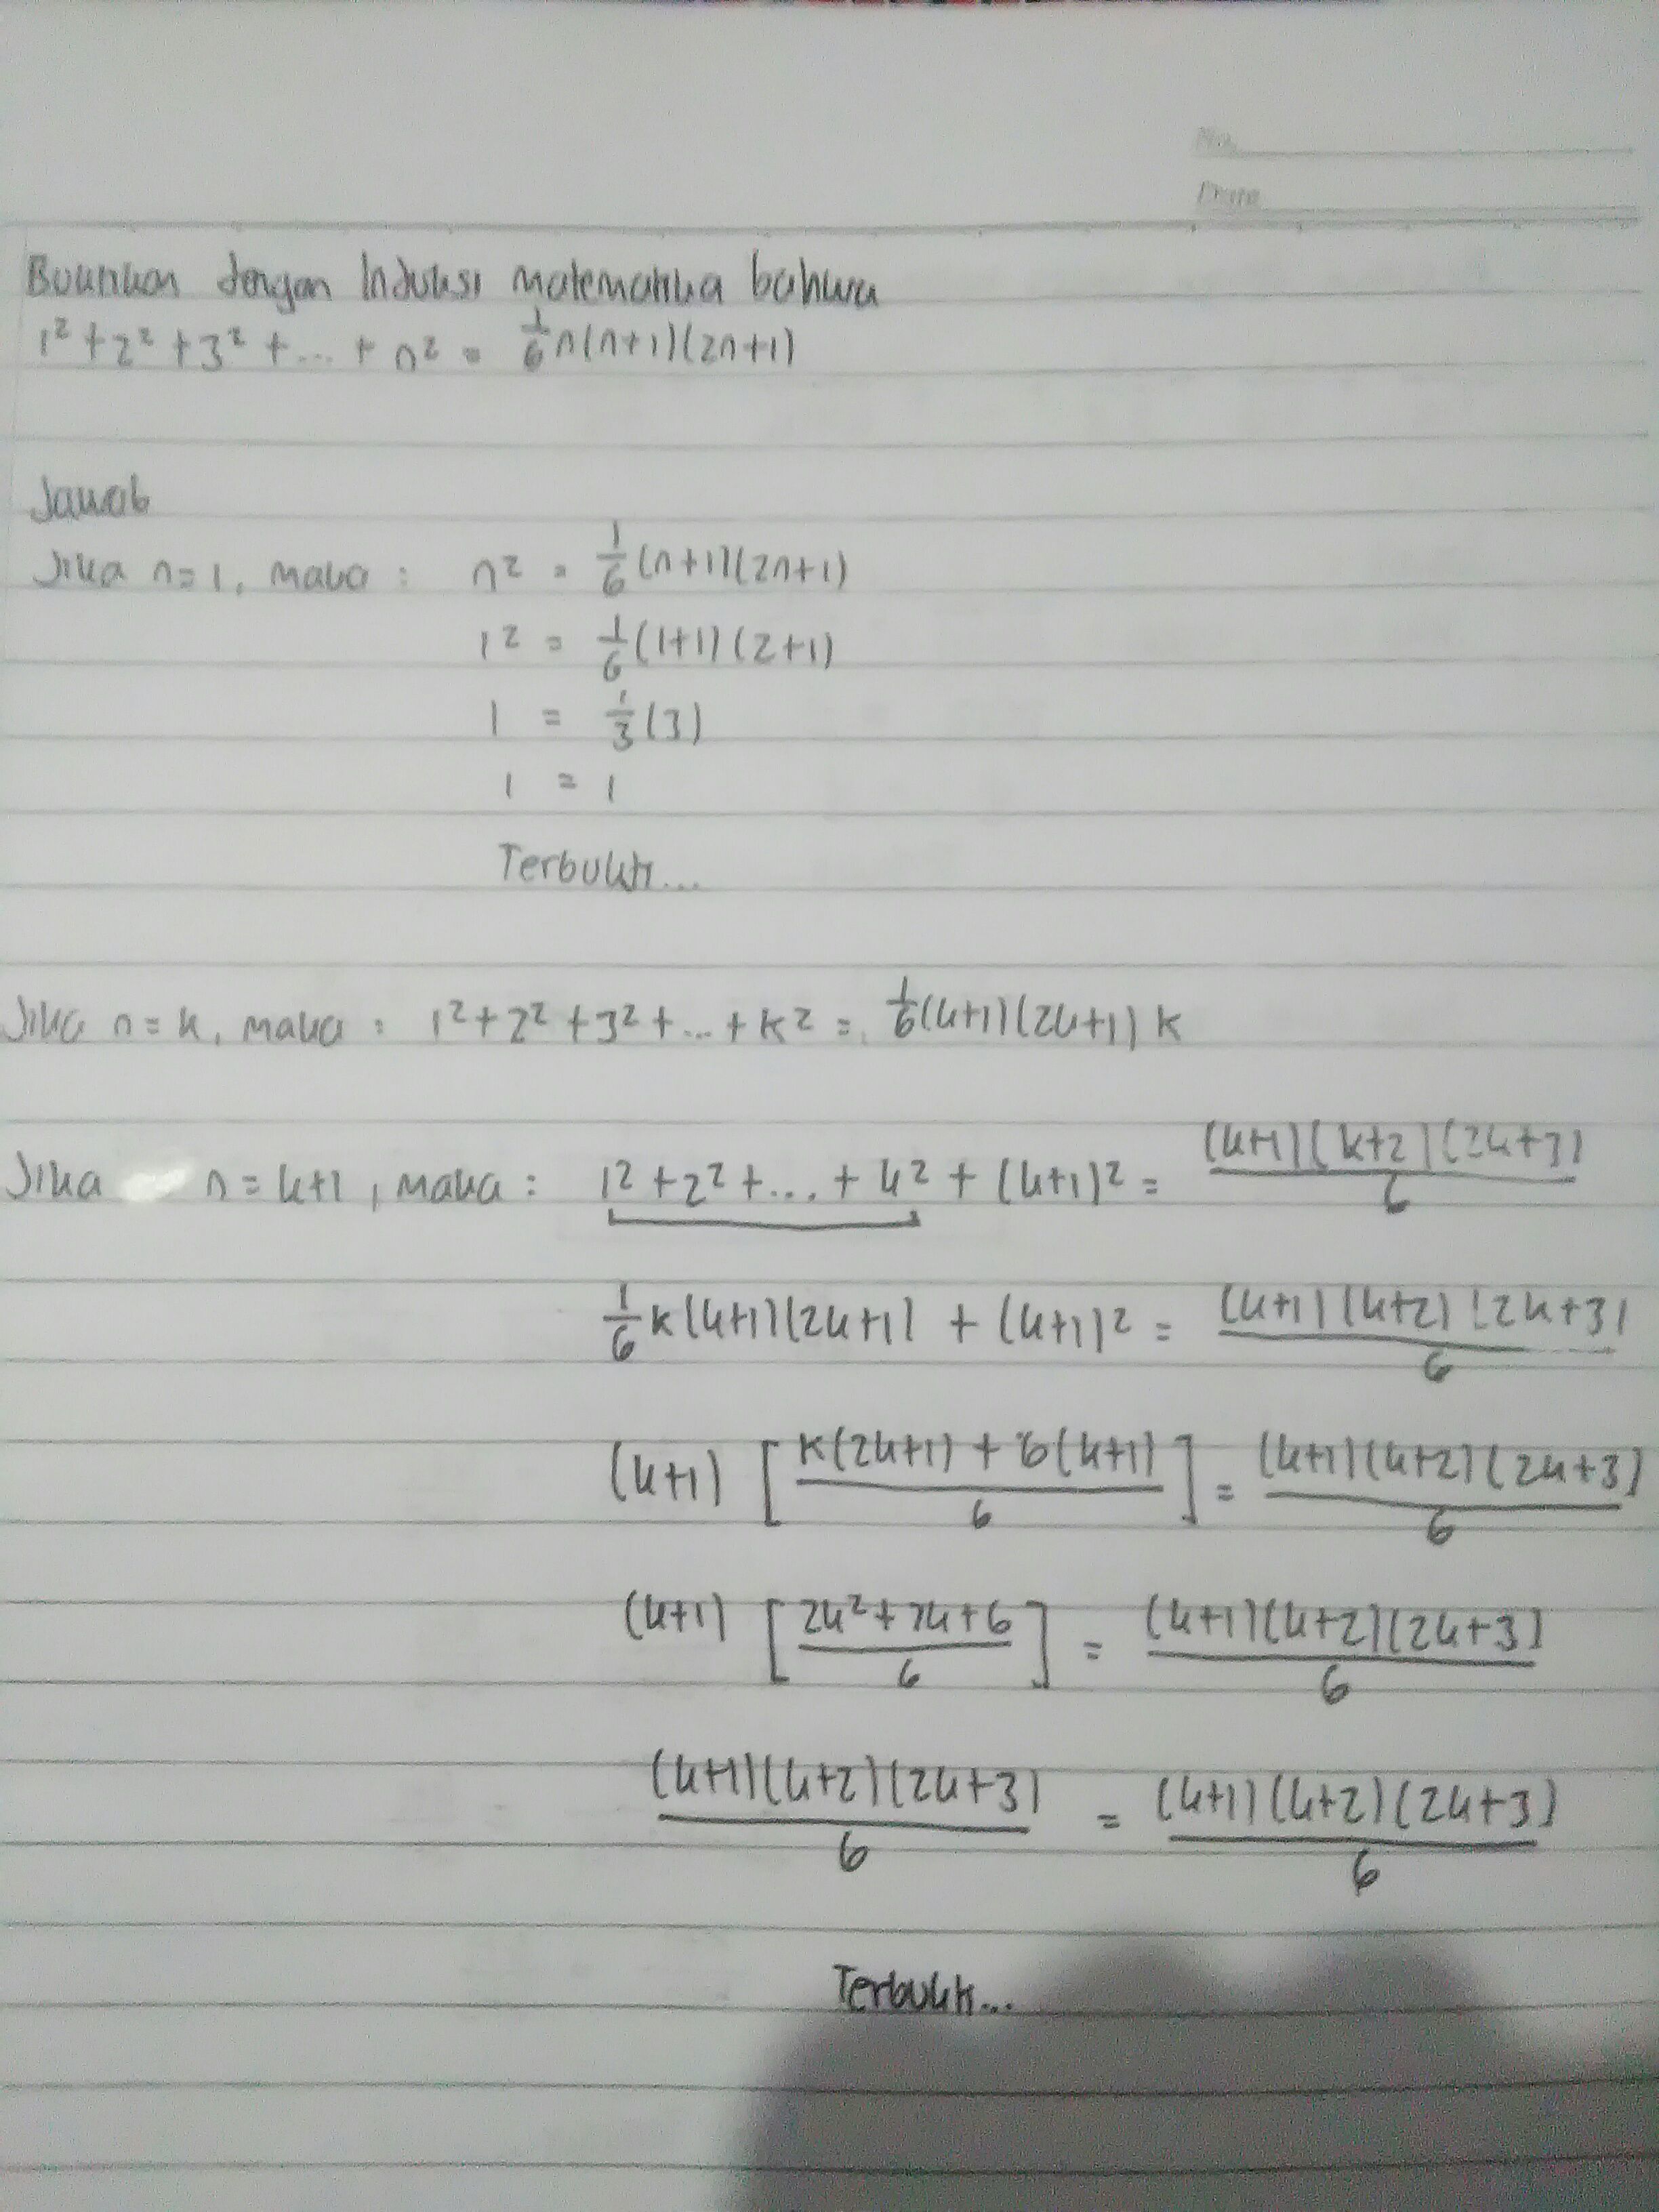 No.
Date
Buktikan dengan Induksi matematika bahwa
1² + 2² + 3² + ... + n² = 1/6 n(n+1)(2n+1)
Jawab
Jika n=1, maka : n² = 1/6 (n+1)(2n+1)
1² = 1/6 (1+1)(2+1)
1 = 1/3 (3)
1 = 1
Terbukti...
Jika n=k, maka : 1² + 2² + 3² + ... + k² = 1/6 (k+1)(2k+1) k
Jika n=k+1, maka : 1² + 2² + ... + k² + (k+1)² = (k+1)(k+2)(2k+3)/6
1/6 k(k+1)(2k+1) + (k+1)² = (k+1)(k+2)(2k+3)/6
(k+1) [k(2k+1) + 6(k+1)/6] = (k+1)(k+2)(2k+3)/6
(k+1) [2k²+7k+6/6] = (k+1)(k+2)(2k+3)/6
(k+1)(k+2)(2k+3)/6 = (k+1)(k+2)(2k+3)/6
Terbukti...